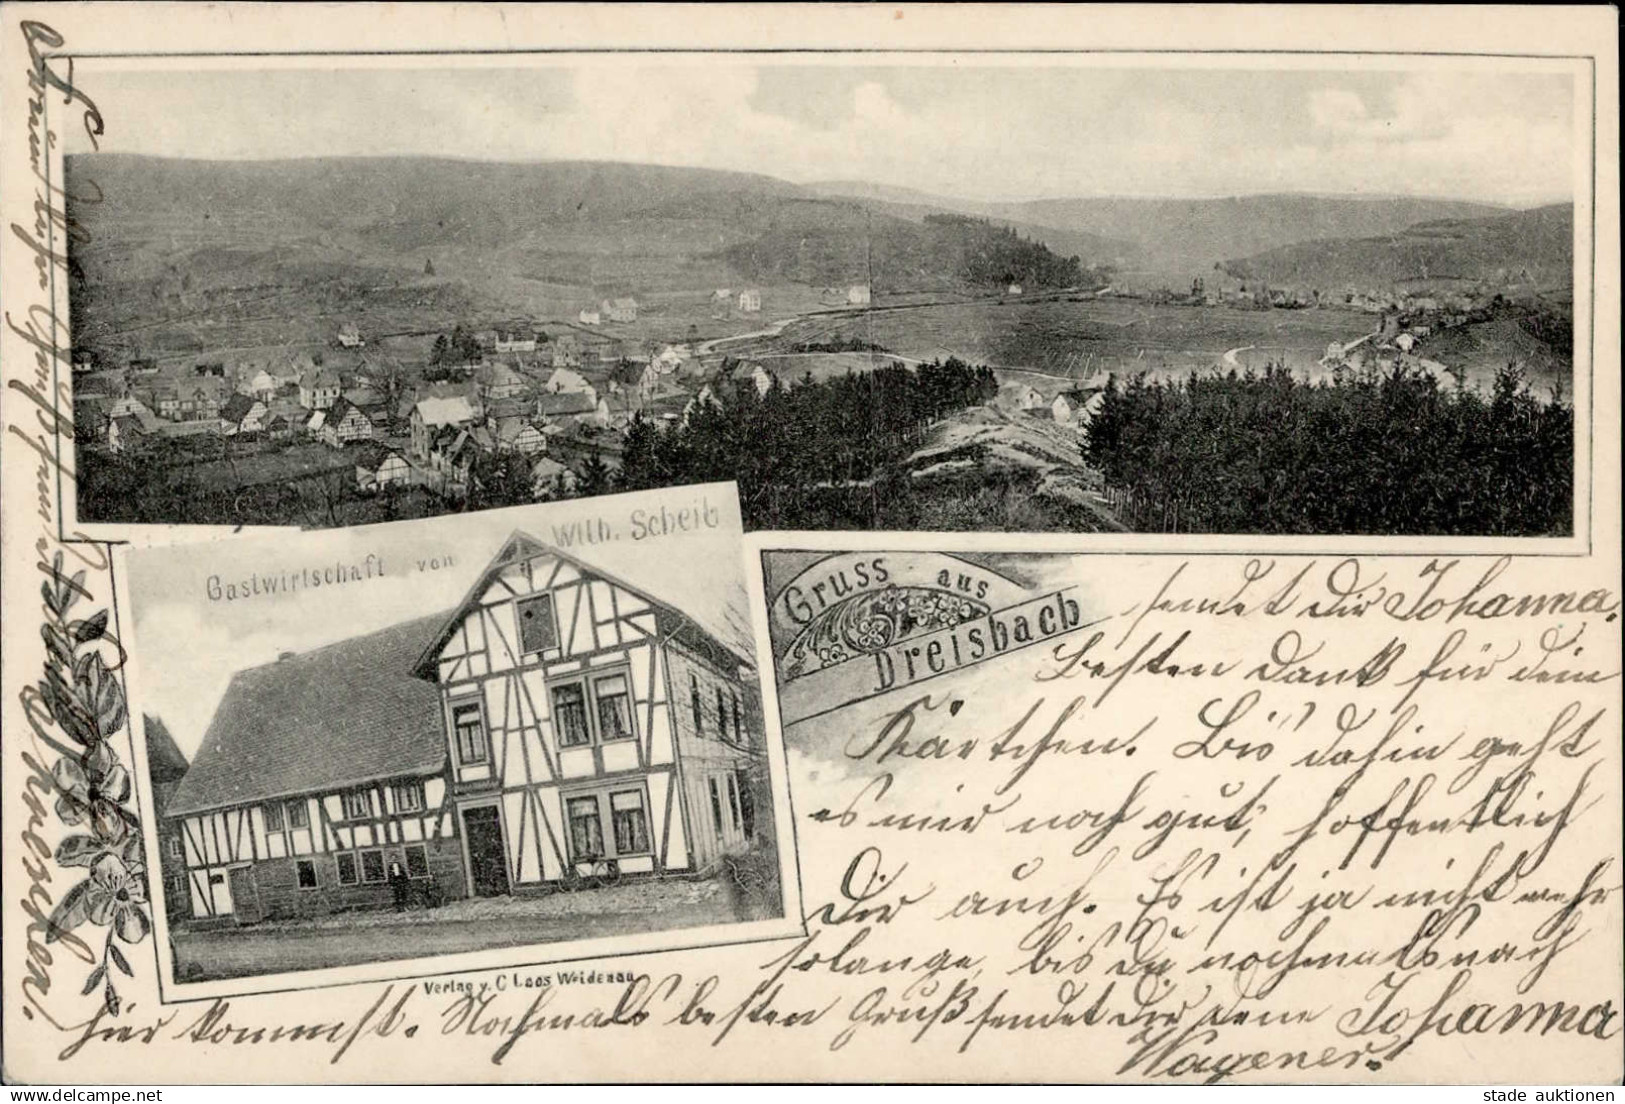 Gastwirtschaft von Wilh. Scheib
Gruss aus
Dreisbach
Verlag v. C Loos Weidenau
sendet Dir Johanna.
Besten Dank für dein
Kärtchen. Bis dahin geht
es mir noch gut, hoffentlich
Dir auch. Es ist ja nicht mehr
solange, bis Du nochmals nach
hier kommst. Nochmals besten Gruß sendet Dir Deine Johanna
Wagener.
stade auktionen